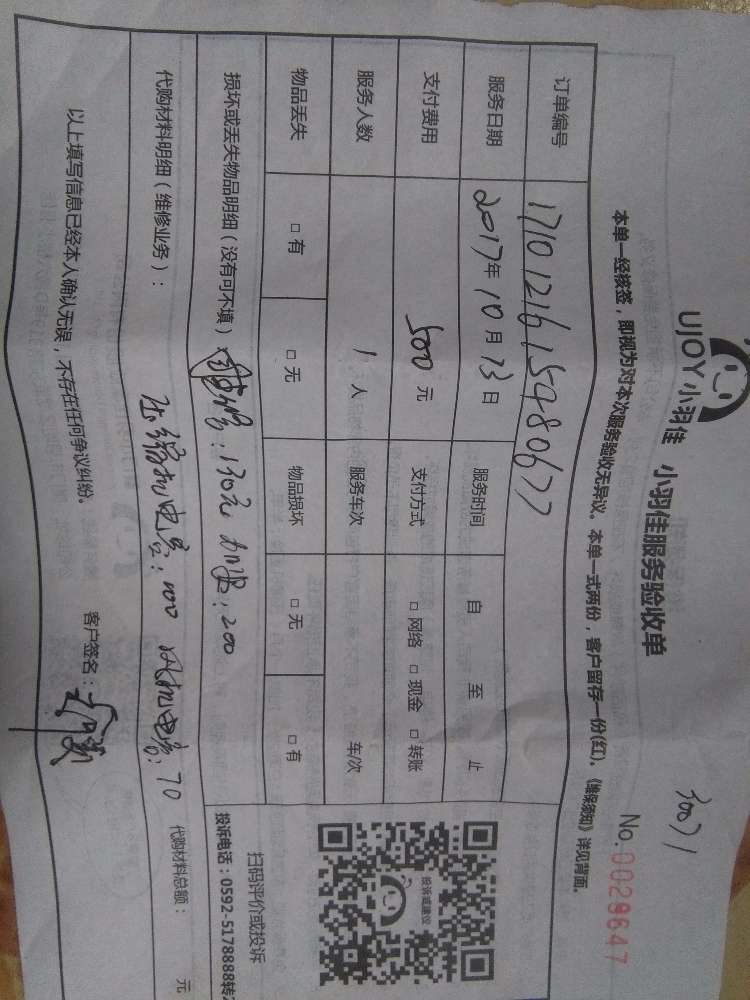 30071
UJOY小羽佳 小羽佳服务验收单
No.0029847
本单一经核签，即视为对本次服务验收无异议。本单一式两份，客户留存一份(红)。《维保须知》详见背面。
订单编号 17101216154980677
服务日期 2017年10月13日 服务时间 自 至 止
支付费用 500元 支付方式 □网络 □现金 □转账
服务人数 1人 服务车次 车/次
物品丢失 □有 □无 物品损坏 □无 □有
损坏或丢失物品明细（没有可不填）：130元 加氟：200
代购材料明细（维修业务）： 压缩机电容：100 风机电容：70 代购材料总额： 元
以上填写信息已经本人确认无误，不存在任何争议纠纷。 客户签名：
投诉或建议
扫码评价或投诉
投诉电话：0592-5178888转2